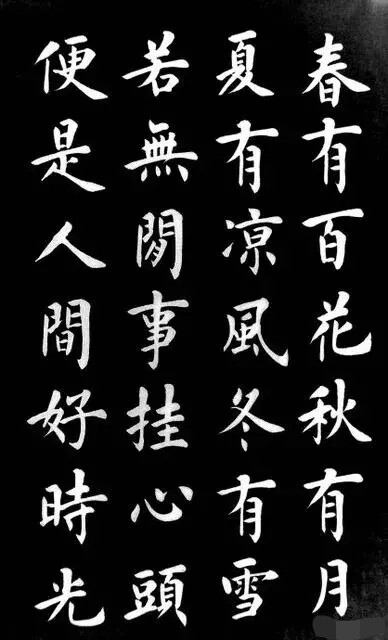 春有百花秋有月
夏有凉風冬有雪
若無閒事挂心頭
便是人間好時光